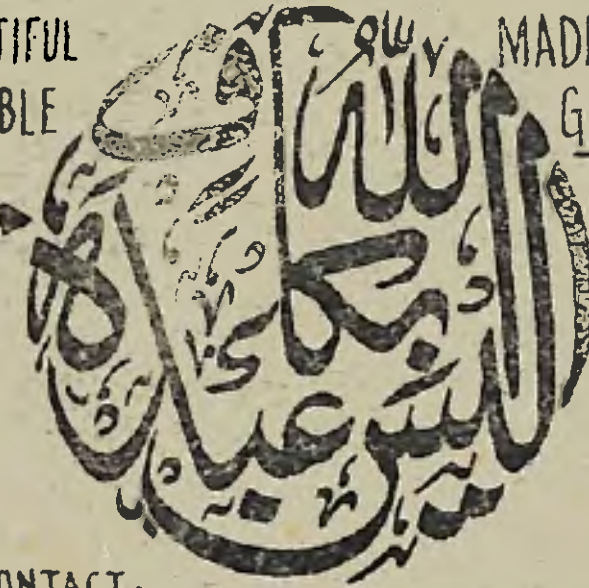 TIFUL
BLE
MADE
G
أليس الله بكاف عبده
CONTACT: